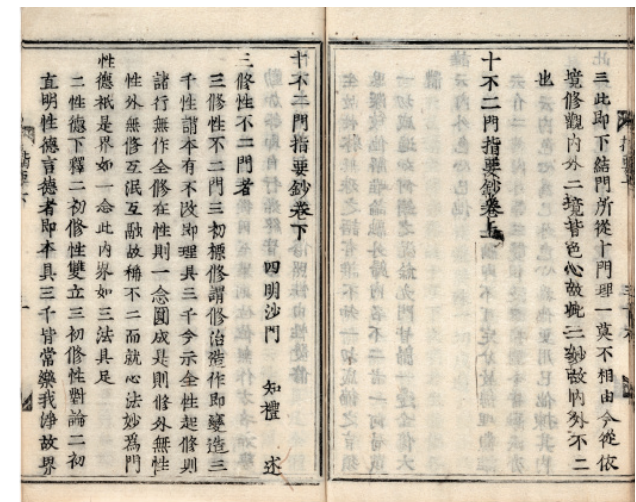 三此即下結門所從十門理一莫不相由今從依
境修觀內外二境皆色心故從二妙故內外不二
也
十不二門指要鈔卷上
十不二門指要鈔卷下
四明沙門 知禮 述
三修性不二門者
三修性不二門三初標修謂修治造作即變造三
千性謂本有不改即理具三千今示全性起修則
諸行無作全修在性則一念圓成是則修外無性
性外無修互泯互融故稱不二而就心法妙為門
性德祇是界如一念此內界如三法具足
二性德下釋二初修性雙立三初修性對論二初
直明性德言德者即本具三千皆常樂我淨故界